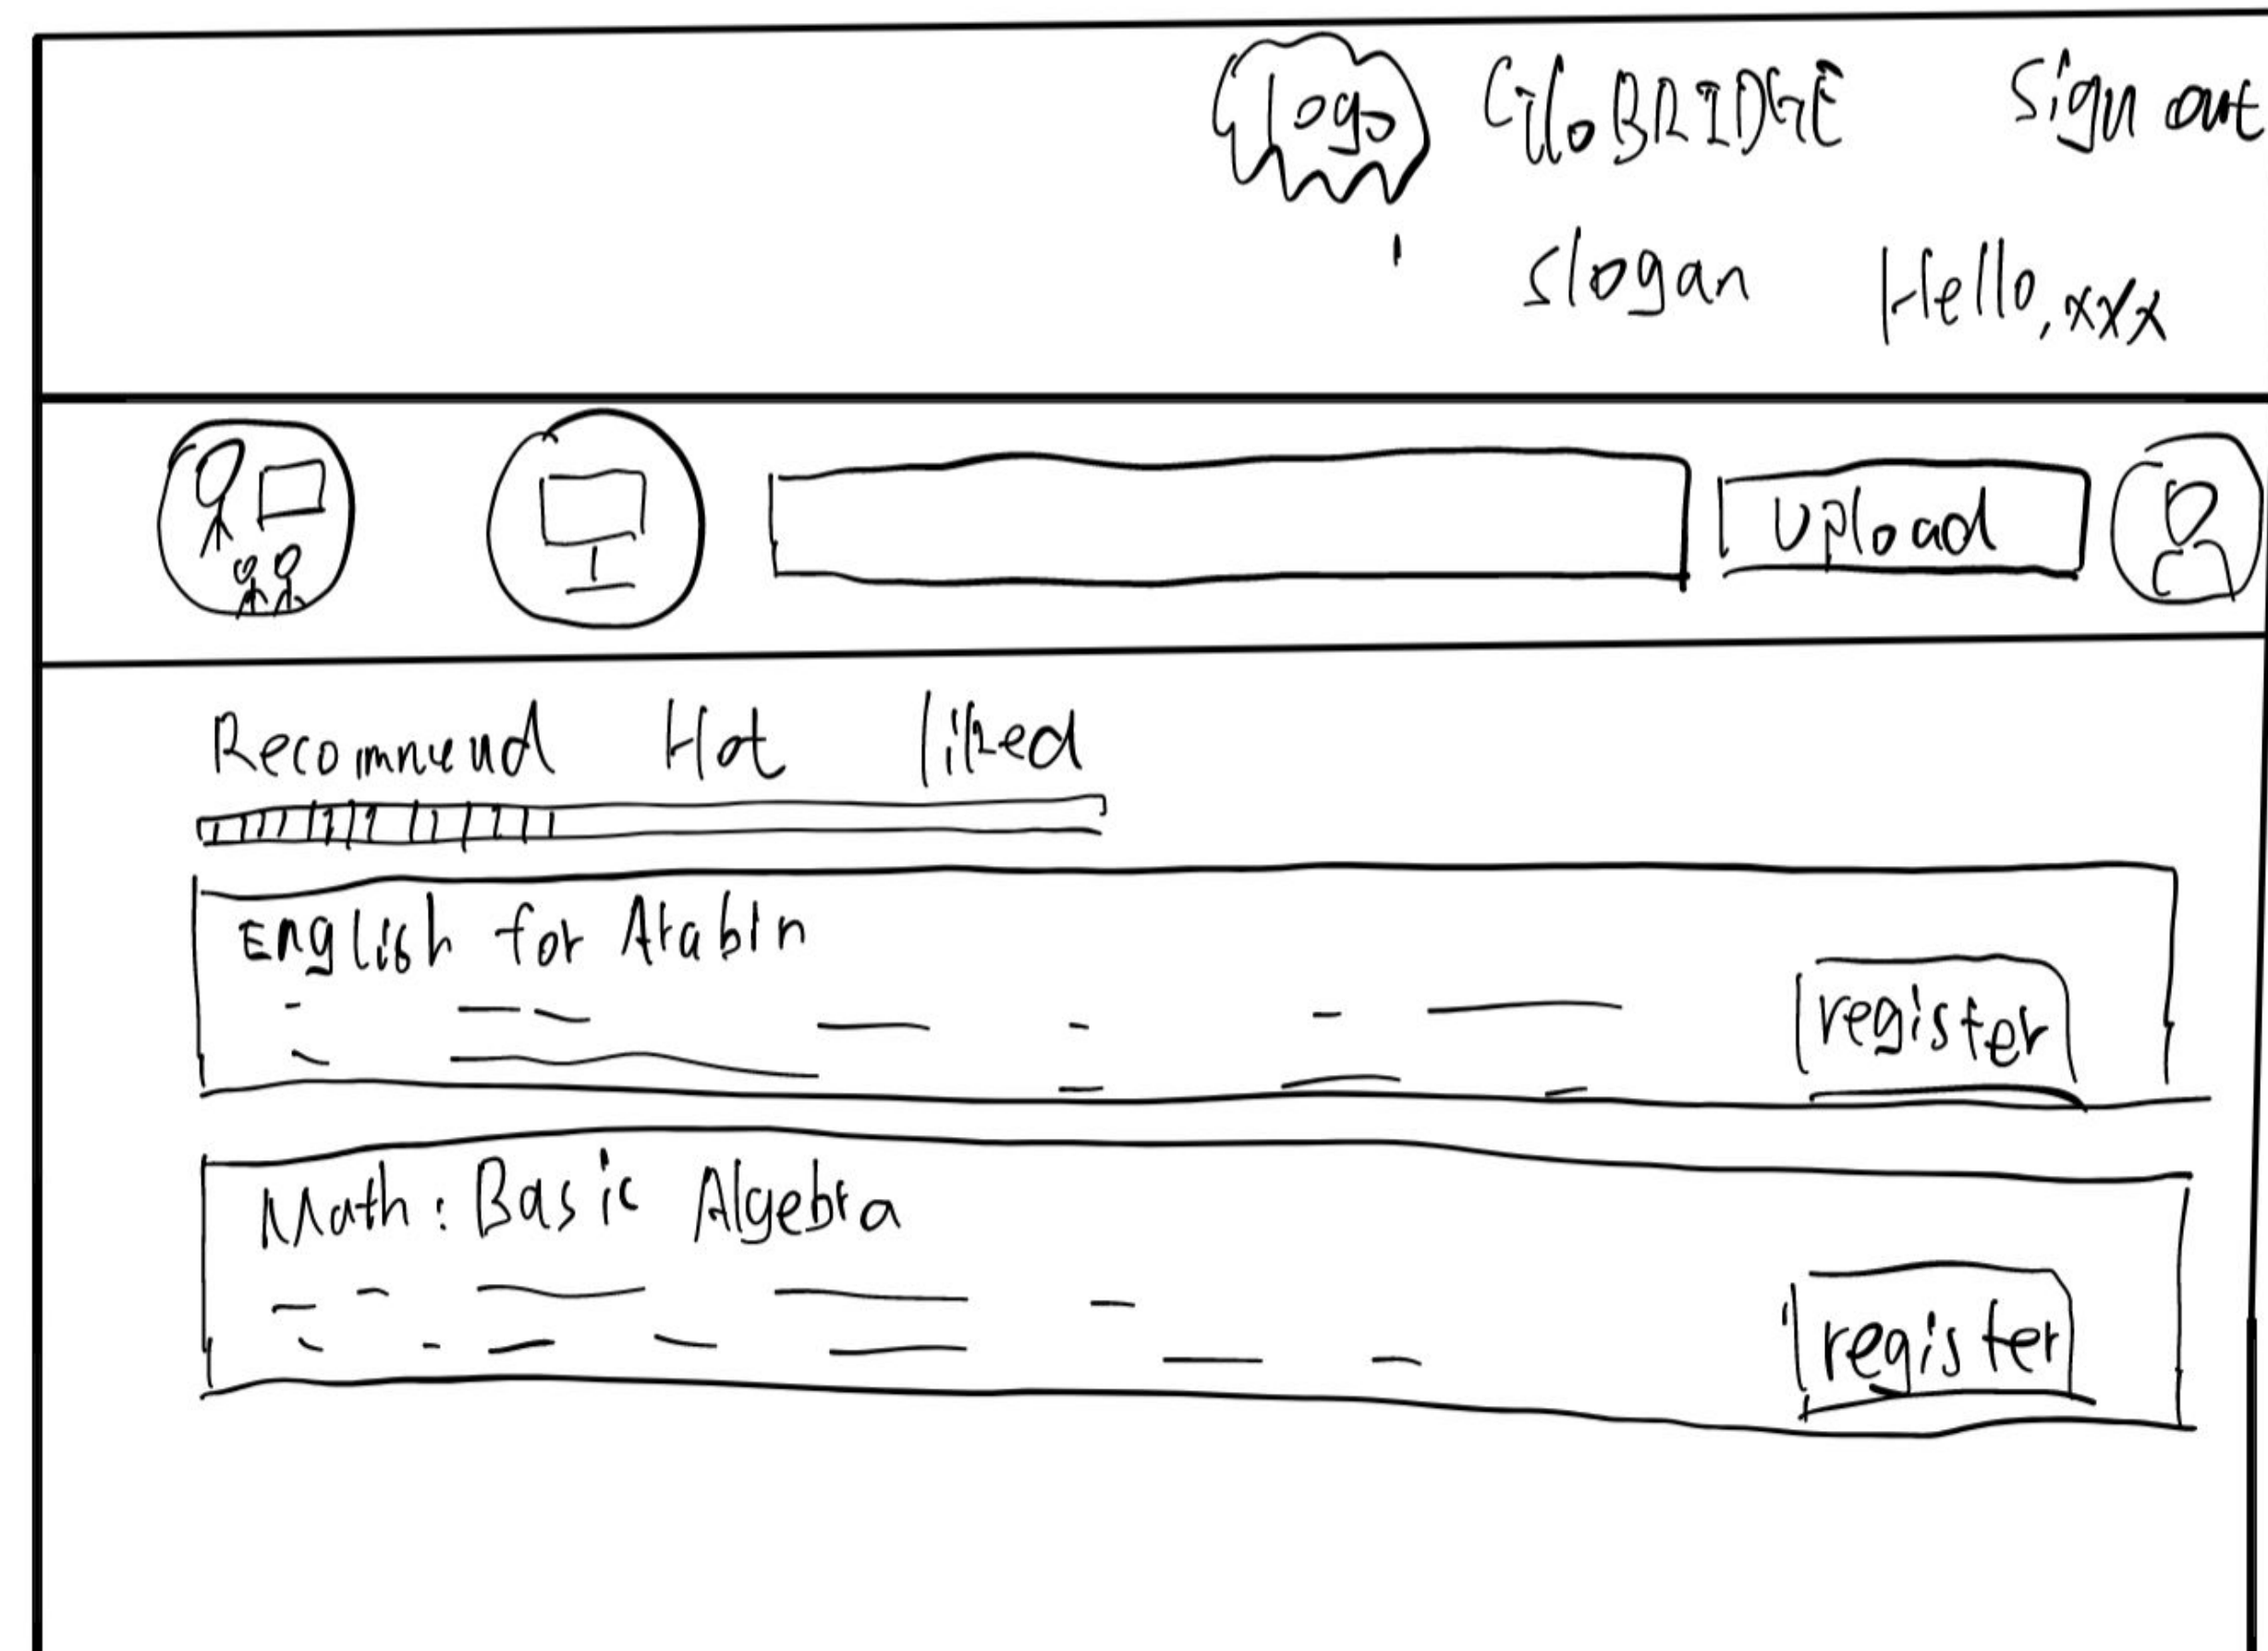 logo GloBRIDGE Sign out
slogan Hello, xxx
Upload
Recommend Hot liked
English for Arabin
register
Math: Basic Algebra
register